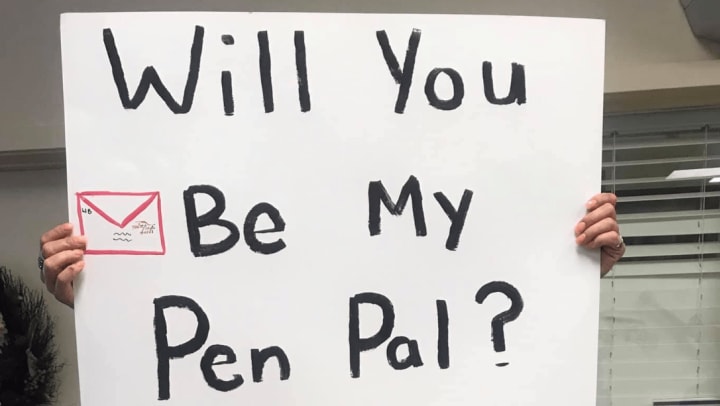 Will You
Be My
Pen Pal?